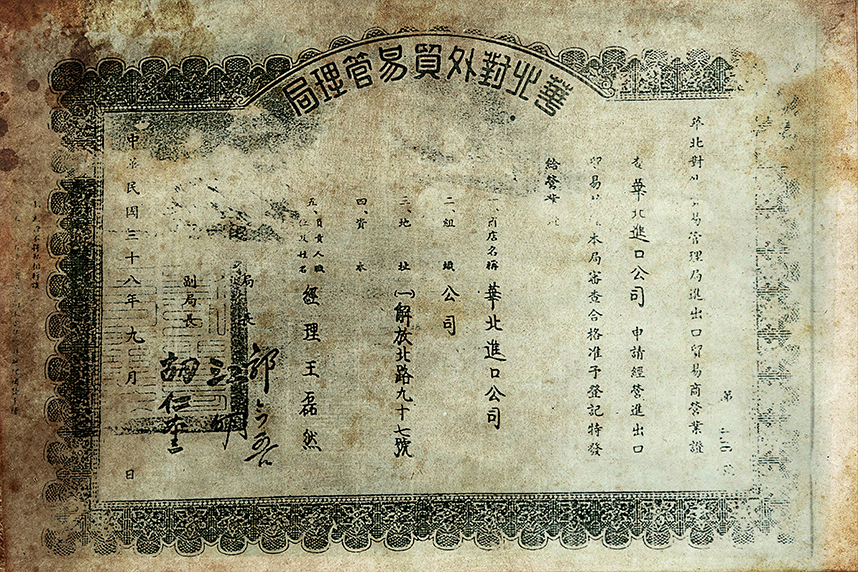 華北對外貿易管理局
華北對外貿易管理局進出口貿易商營業證
第 號
華北進口公司 申請經營進出口
貿易 本局審查合格准予登記特發
給營業
商店名稱 華北進口公司
二、組織 公司
三、地址 (一)解放北路九十七號
四、資本
五、負責人職位及姓名 經理王磊然
局長
副局長
中華民國三十八年九月 日